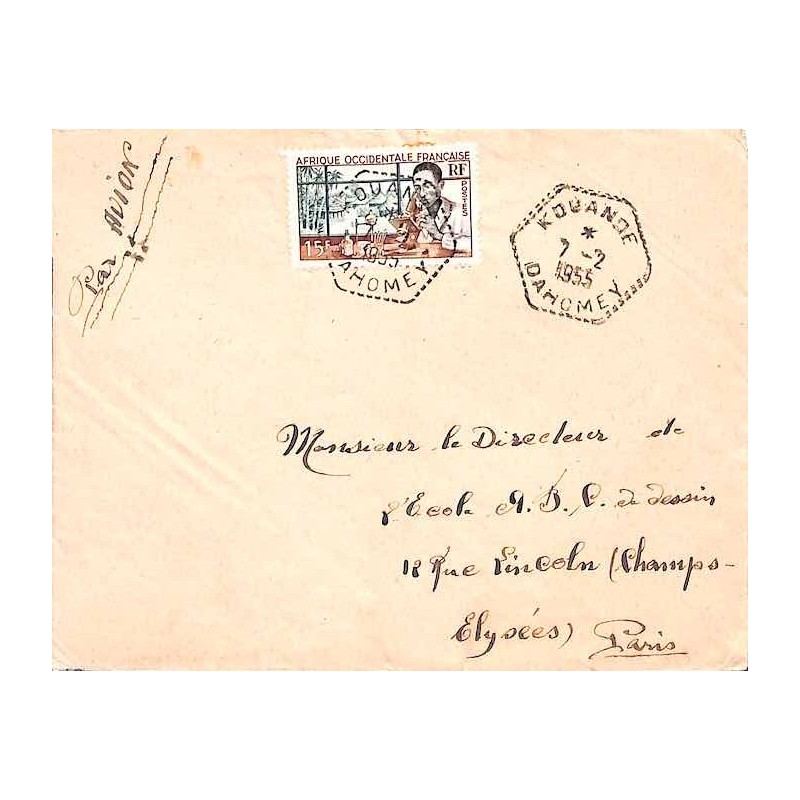 Par AVION
AFRIQUE OCCIDENTALE FRANÇAISE
RF
POSTES
15F
KOUANDE
7-2
1955
DAHOMEY
KOUANDE
*
7-2
1955
DAHOMEY
Monsieur le Directeur de
l'Ecole A.B.C. de dessin
12 Rue Lincoln (Champs-
Elysées) Paris